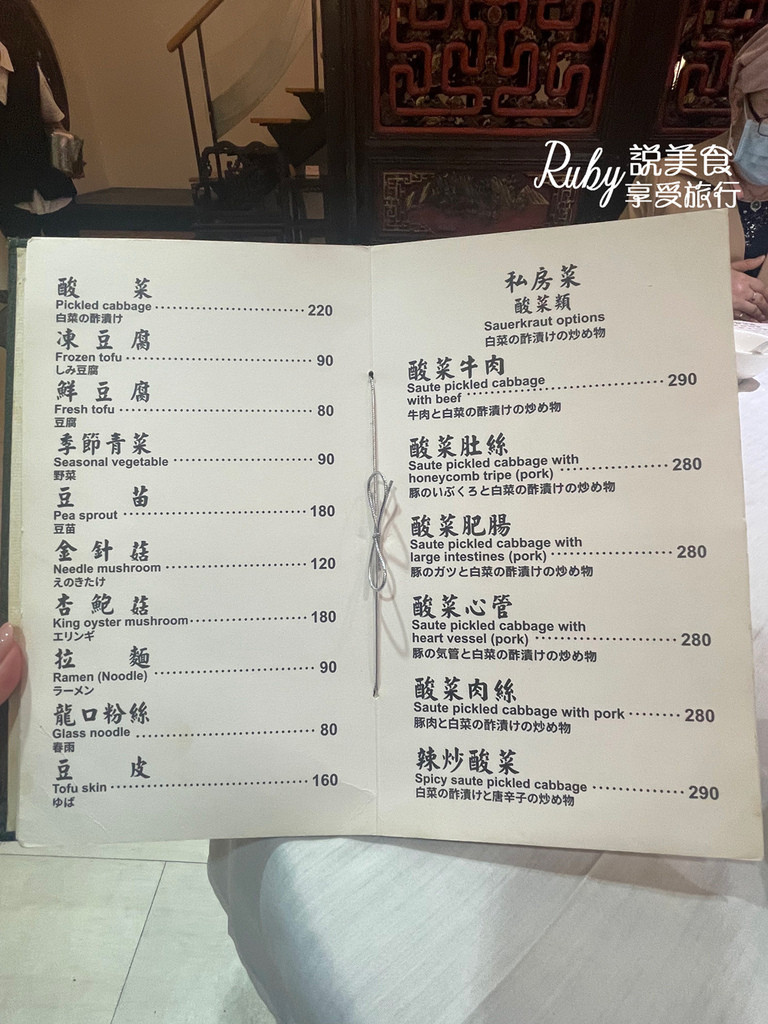 Ruby 說美食
享受旅行
酸菜
Pickled cabbage 220
白菜の酢漬け
凍豆腐
Frozen tofu 90
しみ豆腐
鮮豆腐
Fresh tofu 80
豆腐
季節青菜
Seasonal vegetable 90
野菜
豆苗
Pea sprout 180
豆苗
金針菇
Needle mushroom 120
えのきたけ
杏鮑菇
King oyster mushroom 180
エリンギ
拉麵
Ramen (Noodle) 90
ラーメン
龍口粉絲
Glass noodle 80
春雨
豆皮
Tofu skin 160
ゆば
私房菜
酸菜類
Sauerkraut options
白菜の酢漬けの炒め物
酸菜牛肉
Saute pickled cabbage
with beef 290
牛肉と白菜の酢漬けの炒め物
酸菜肚絲
Saute pickled cabbage with
honeycomb tripe (pork) 280
豚のいぶくろと白菜の酢漬けの炒め物
酸菜肥腸
Saute pickled cabbage with
large intestines (pork) 280
豚のガツと白菜の酢漬けの炒め物
酸菜心管
Saute pickled cabbage with
heart vessel (pork) 280
豚の気管と白菜の酢漬けの炒め物
酸菜肉絲
Saute pickled cabbage with pork 280
豚肉と白菜の酢漬けの炒め物
辣炒酸菜
Spicy saute pickled cabbage 290
白菜の酢漬けと唐辛子の炒め物